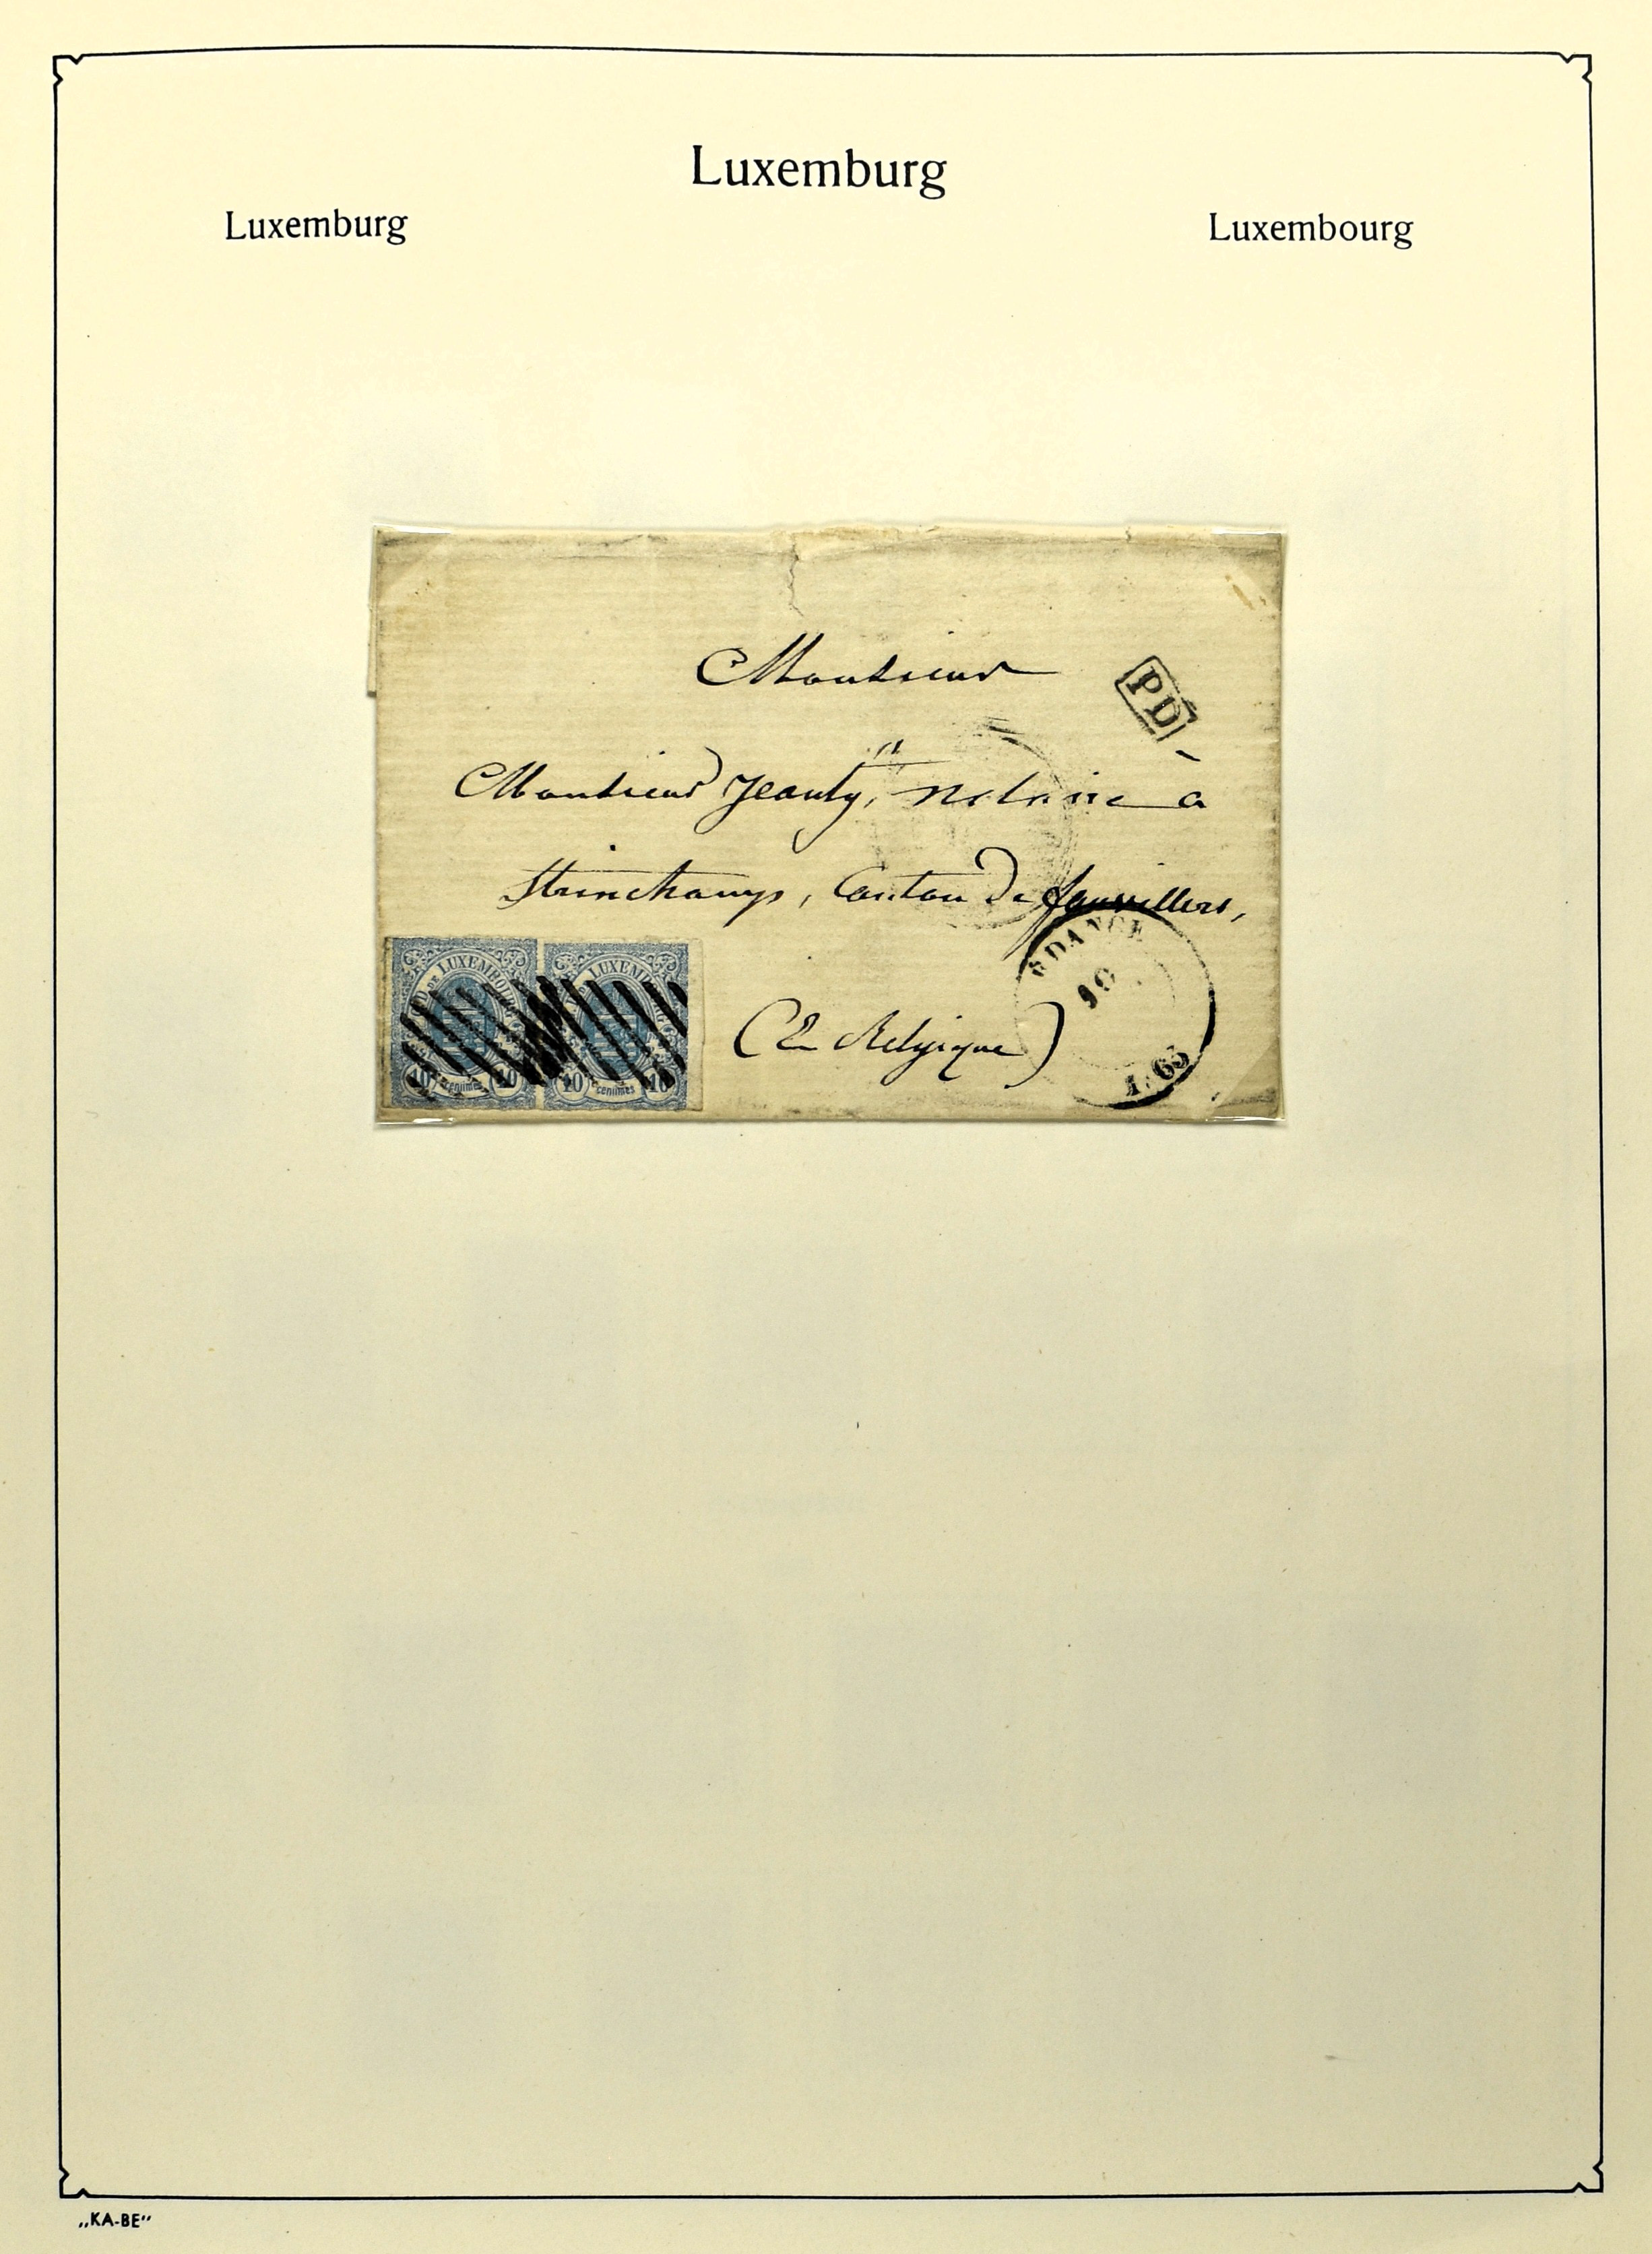 Luxemburg
Luxemburg
Luxembourg
Monsieur
PD
Monsieur Jeanty, Notaire à
Strinchamps, Canton de fauvillers,
(En Belgique)
DANGE
10
1 63
LUXEMBOURG
10 centimes 10
LUXEMBOURG
10 centimes 10
„KA-BE“